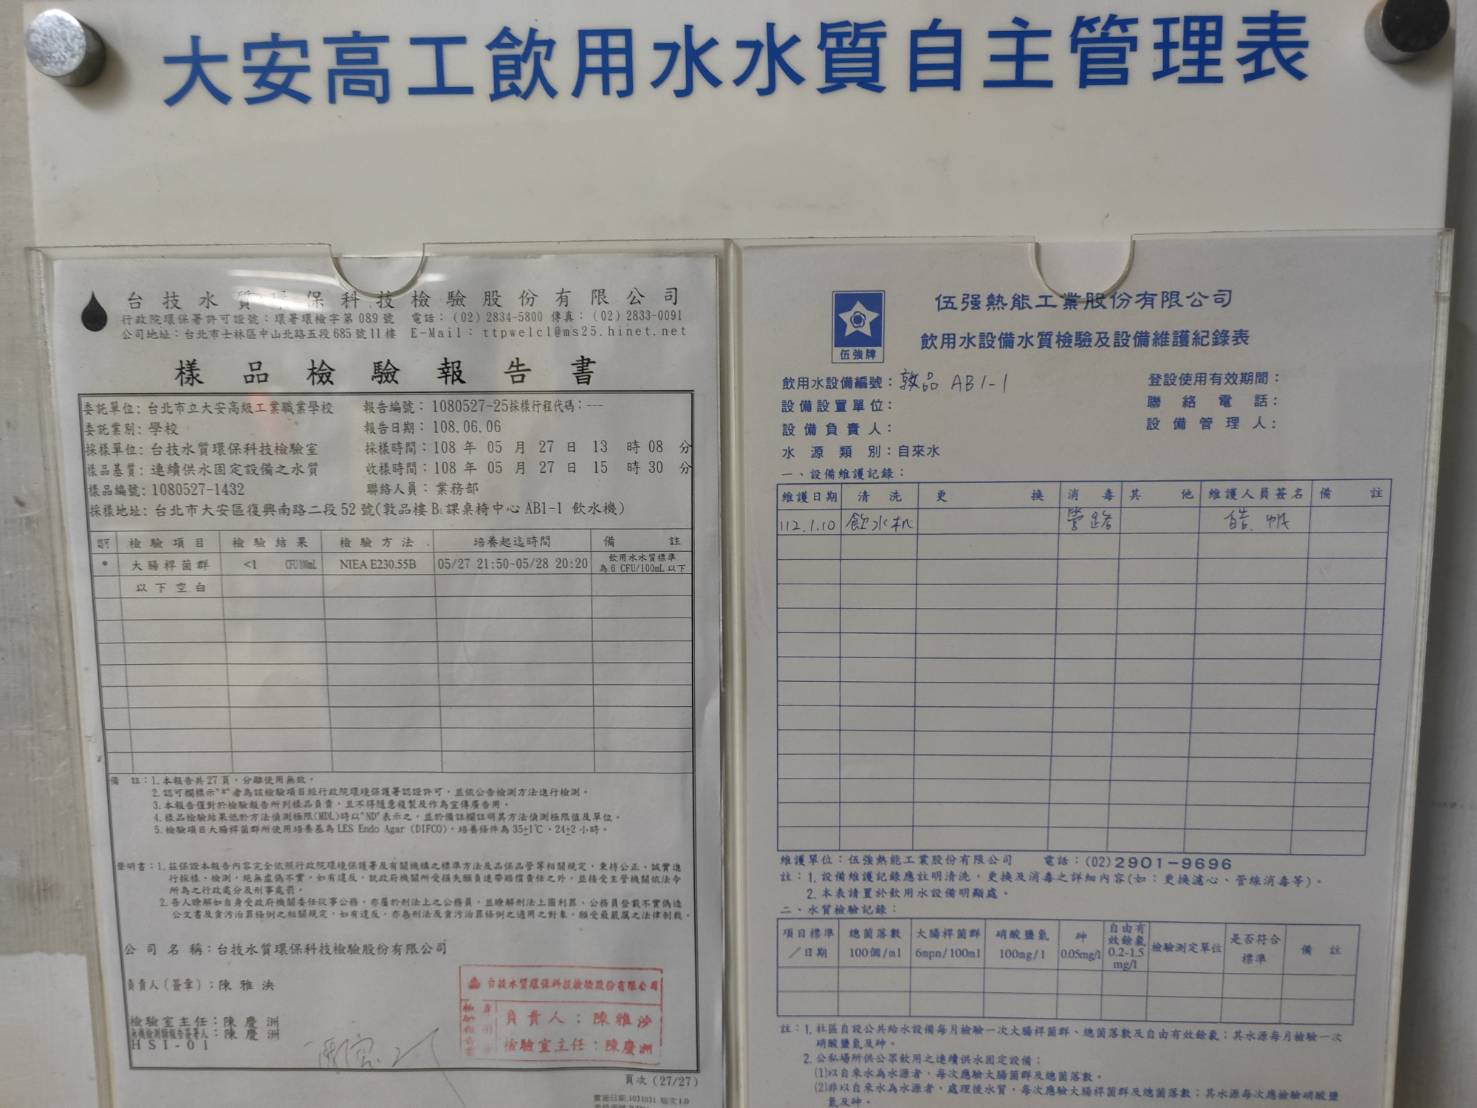 大安高工飲用水水質自主管理表
台技水質環保科技檢驗股份有限公司
行政院環保署許可證號：環署環檢字第089號 電話：(02) 2834-5800 傳真：(02) 2833-0091
公司地址：台北市士林區中山北路五段685號11樓 E-Mail： ttpwelcl@ms25.hinet.net
樣品檢驗報告書
委託單位：台北市立大安高級工業職業學校 報告編號：1080527-25採樣行程代碼：---
委託業別：學校 報告日期：108.06.06
採樣單位：台技水質環保科技檢驗室 採樣時間：108 年 05 月 27 日 13 時 08 分
樣品基質：連續供水固定設備之水質 收樣時間：108 年 05 月 27 日 15 時 30 分
樣品編號：1080527-1432 聯絡人員：業務部
採樣地址：台北市大安區復興南路二段52號(敦品樓B:課桌椅中心AB1-1 飲水機)
檢驗項目 檢驗結果 檢驗方法 培養起迄時間 備註
* 大腸桿菌群 <1 CFU/100mL NIEA E230.55B 05/27 21:50-05/28 20:20 飲用水水質標準
為6 CFU/100mL以下
以下空白
備 註：1.本報告共27頁，分離使用無效。
2.認可欄標示"*"者為該檢驗項目經行政院環境保護署認證許可，並依公告檢測方法進行檢測。
3.本報告僅對於檢驗報告所列樣品負責，且不得隨意複製及作為宣傳廣告用。
4.樣品檢驗結果低於方法偵測極限(MDL)時以"ND"表示之，並於備註欄註明其方法偵測極限值及單位。
5.檢驗項目大腸桿菌群所使用培養基為LES Endo Agar (DIFCO)，培養條件為35±1℃，24±2小時。
聲明書：1.茲保證本報告內容完全依照行政院環境保護署及有關機構之標準方法及品保品管等相關規定，秉持公正、誠實進
行採樣、檢測，絕無虛偽不實，如有違反，就政府機關所受損失願負連帶賠償責任之外，並接受主管機關依法令
所為之行政處分及刑事處罰。
2.吾人瞭解如自身受政府機關委任從事公務，亦屬於刑法上之公務員，並瞭解刑法上圖利罪、公務員登載不實偽造
公文書及貪污治罪條例之相關規定，如有違反，亦為刑法及貪污治罪條例之適用之對象，願受最嚴厲之法律制裁。
公司名稱：台技水質環保科技檢驗股份有限公司
負責人(簽章)：陳雅泱
檢驗室主任：陳慶洲
陳慶洲
HSI-01
台技水質環保科技檢驗股份有限公司
負責人：陳雅
檢驗室主任：陳慶洲
頁次 (27/27)
伍强牌
伍强熱能工業股份有限公司
飲用水設備水質檢驗及設備維護紀錄表
飲用水設備編號：敦品 AB1-1 登設使用有效期間：
設備設置單位： 聯絡電話：
設備負責人： 設備管理人：
水源類別：自來水
一、設備維護記錄：
維護日期 清洗 更換 消毒 其他 維護人員簽名 備註
112.1.10 飲水机 管路
維護單位：伍强熱能工業股份有限公司 電話：(02)2901-9696
註：1.設備維護記錄應註明清洗，更換及消毒之詳細內容(如：更換濾心、管線消毒等)。
2.本表請置於飲用水設備明顯處。
二、水質檢驗記錄：
項目標準／日期 總菌落數 100個/ml 大腸桿菌群 6mpn/100ml 硝酸鹽氮 100mg/l 砷 0.05mg/l 自由有效餘氯 0.2-1.5 mg/l 檢驗測定單位 是否符合標準 備註
註：1.社區自設公共給水設備每月檢驗一次大腸桿菌群、總菌落數及自由有效餘氯；其水源每月檢驗一次
硝酸鹽氮及砷。
2.公私場所供公眾飲用之連續供水固定設備：
(1)以自來水為水源者，每次應驗大腸菌群及總菌落數。
(2)非以自來水為水源者，處理後水質，每次應驗大腸桿菌群及總菌落數；其水源每次應檢驗硝酸鹽
氮及砷。